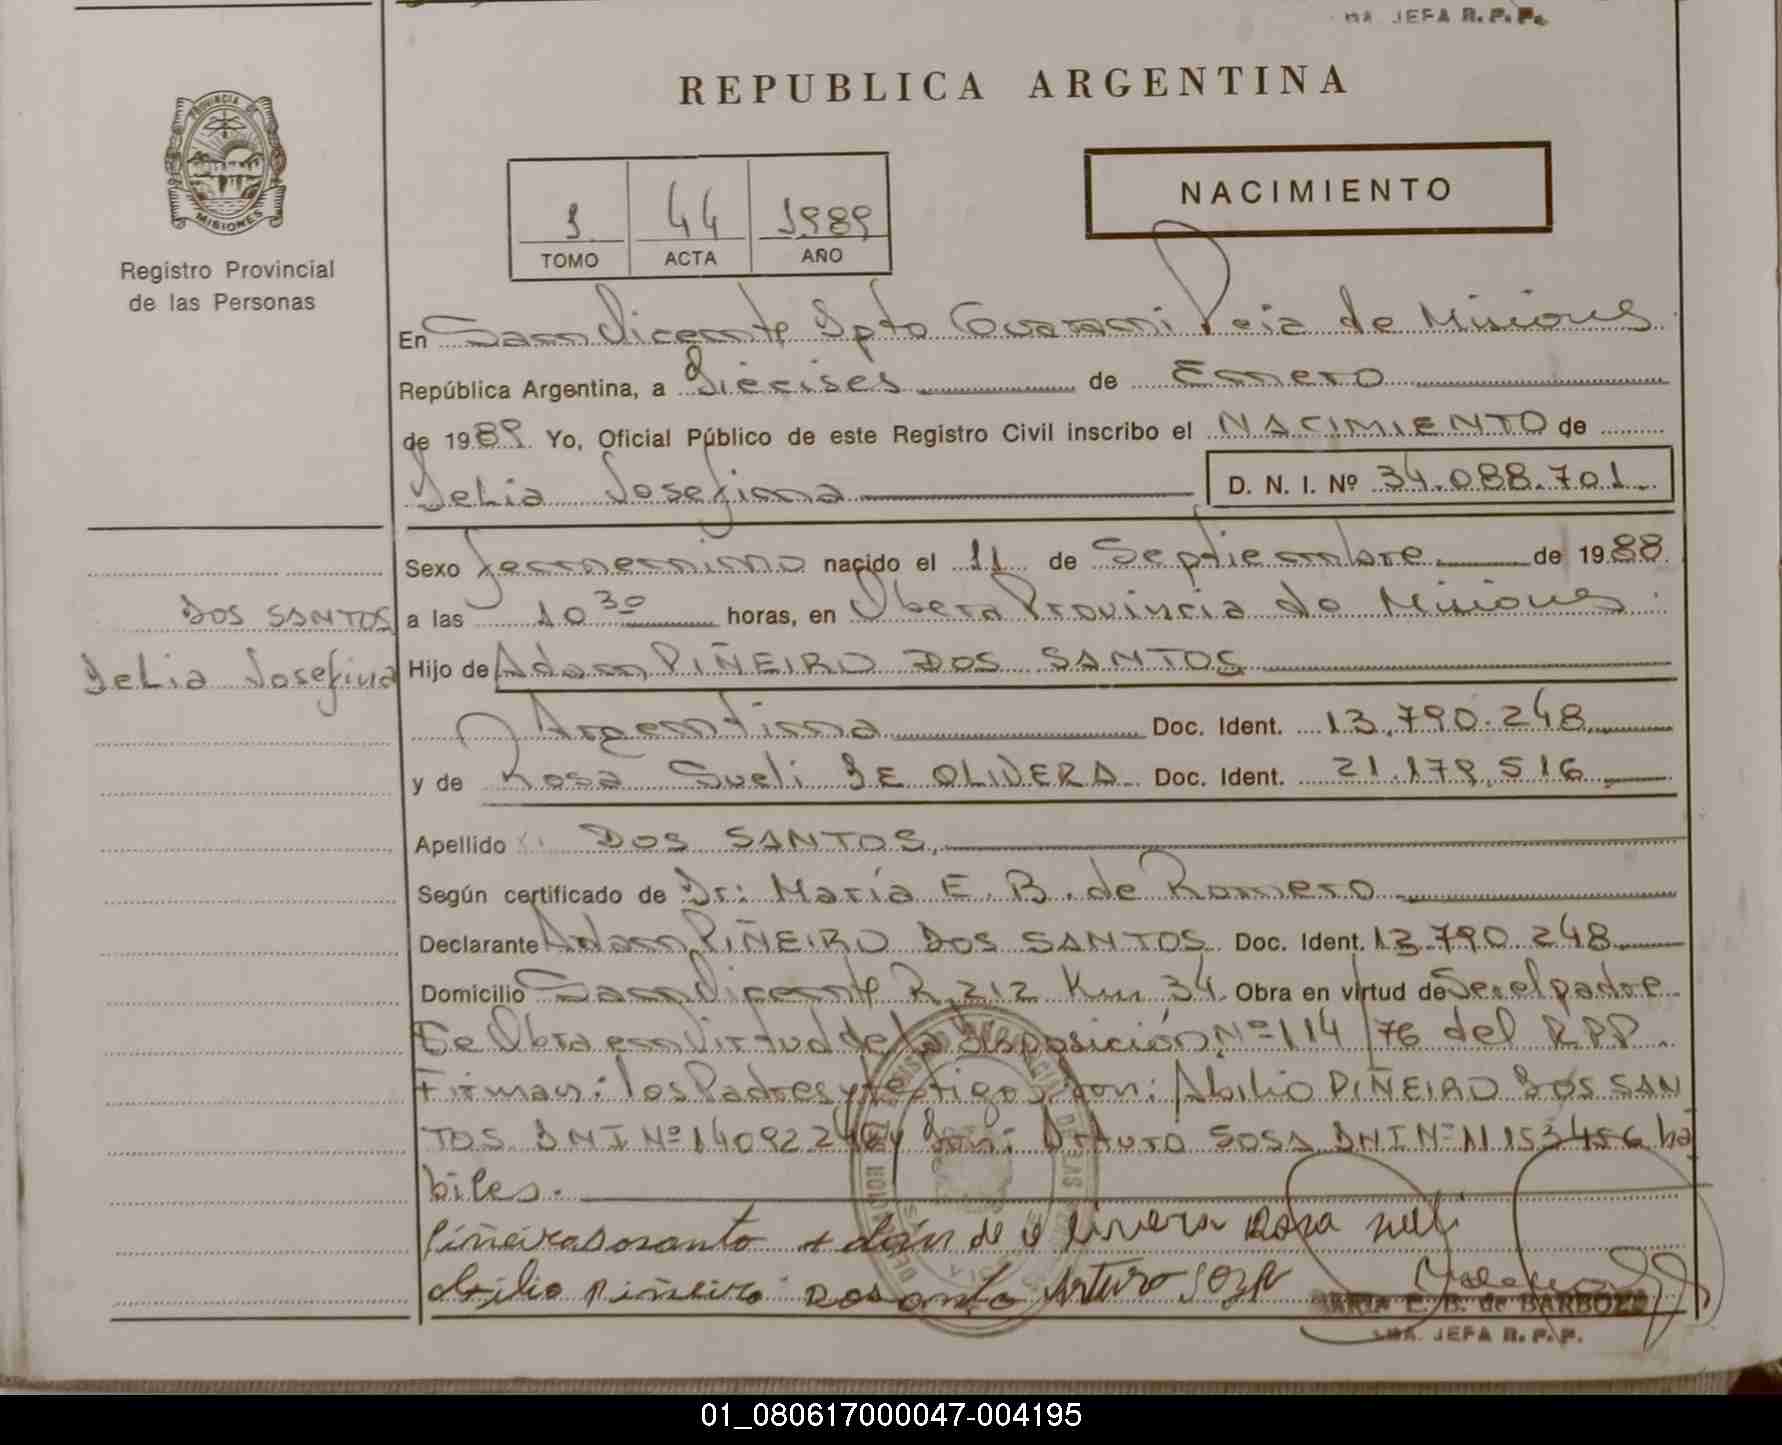 JEFA R. P. P.
REPUBLICA ARGENTINA
PROVINCIA DE
MISIONES
Registro Provincial
de las Personas
NACIMIENTO
1 44 1989
TOMO ACTA AÑO
En San Vicente Dpto Guarani Pcia de Misiones
República Argentina, a Dieciseis de Enero
de 1989 Yo, Oficial Público de este Registro Civil inscribo el NACIMIENTO de
Delia Josefina D. N. I. Nº 34.088.701
Sexo femenino nacido el 11 de Septiembre de 1988
DOS SANTOS
Delia Josefina
a las 10 30 horas, en Obera Provincia de Misiones
Hijo de Adan PIÑEIRO DOS SANTOS
Argentina Doc. Ident. 13.790.248
y de Rosa Sueli DE OLIVERA Doc. Ident. 21.179.516
Apellido DOS SANTOS
Según certificado de Dr: María E. B. de Romero
Declarante Adan PIÑEIRO DOS SANTOS Doc. Ident. 13.790.248
Domicilio San Vicente R. 212 Km 34. Obra en virtud de Ser el padre
Se Obra en Virtud de la Disposición Nº 114/76 del RPP.
Firman: los Padres y testigos Don: Abilio PIÑEIRO DOS SAN
TOS DNI Nº 14092246 y Don: Arturo SOSA DNI Nº 11.153456 há
biles.
Piñeiro Dosanto Adán de olivera Rosa sueli
Abilio Piñeiro Dos santo Arturo SOSA
MARIA E. B. de BARBOZA
JEFA R. P. P.
01_080617000047-004195